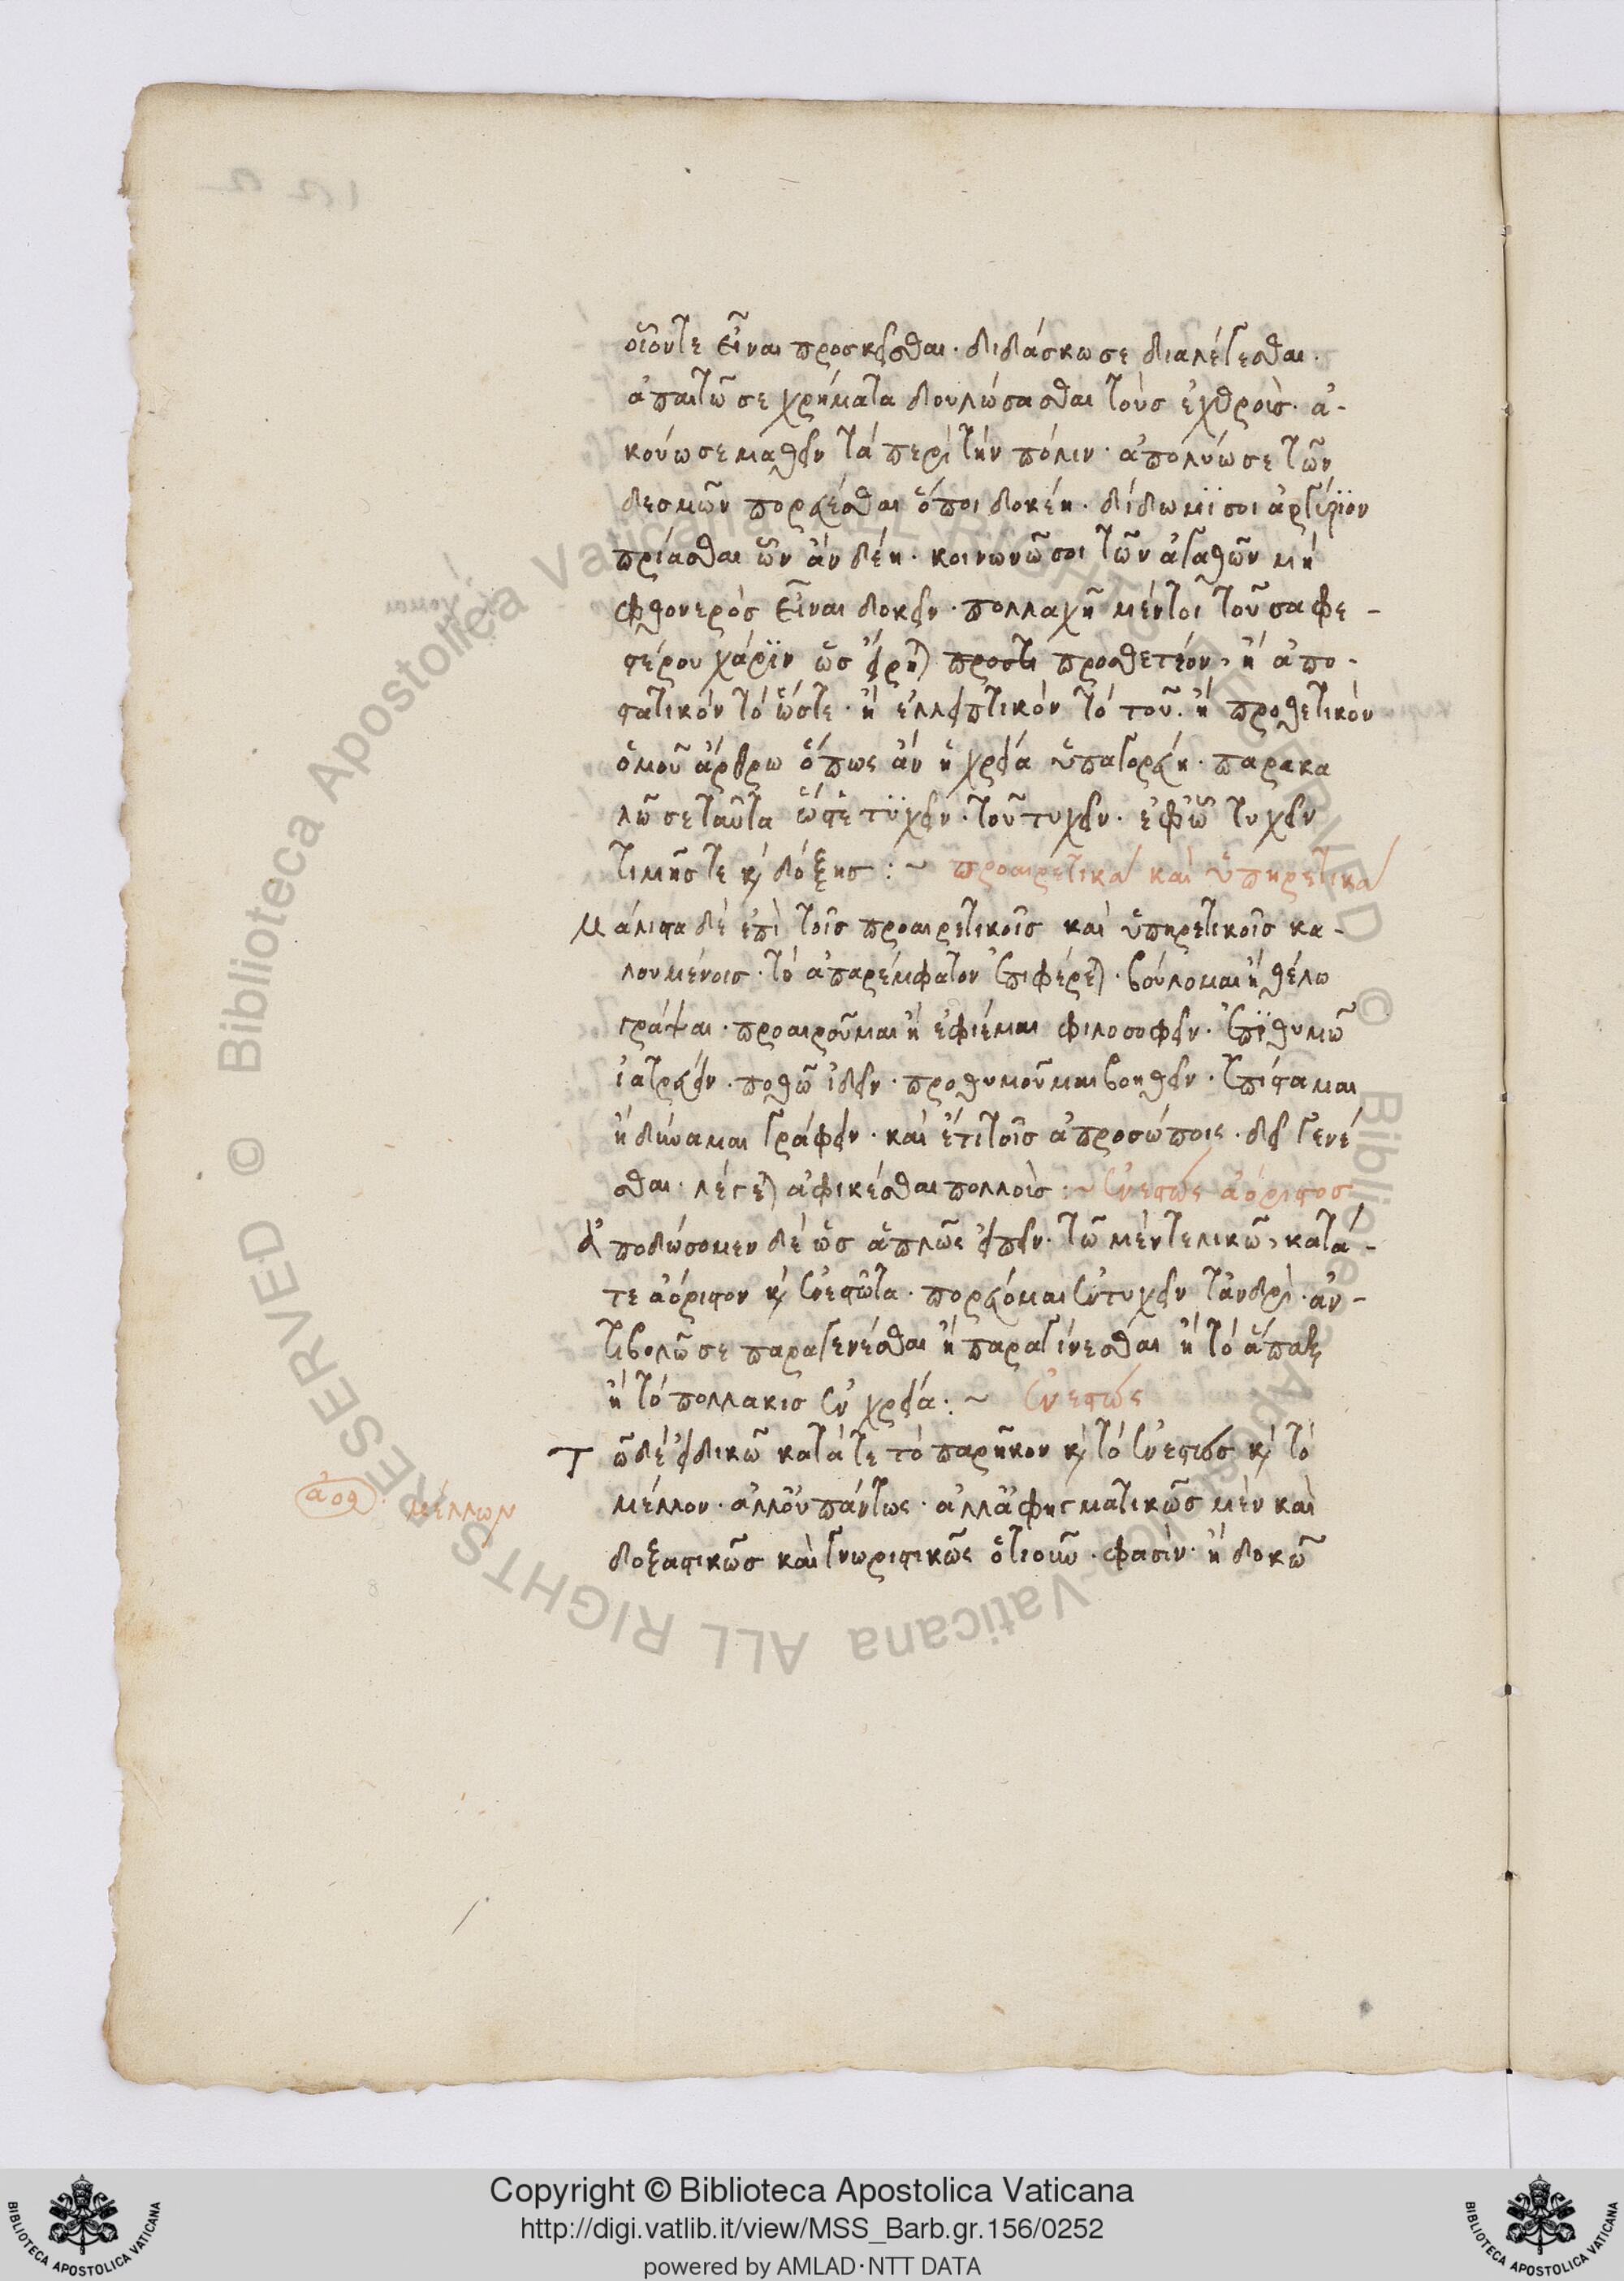 οἷόντε εἶναι προσκεῖσθαι· διδάσκω σε διαλέγεσθαι·
ἀπαιτῶ σε χρήματα δουλώσασθαι τοὺς ἐχθροὺς· ἀ-
κούω σε μαθεῖν τὰ περὶ τὴν πόλιν· ἀπολύω σε τῶν
δεσμῶν πορεύεσθαι ὅποι δοκέη· δίδωμϊ σοι ἀργύρϊον
πρίασθαι ὧν ἂν δέη· κοινωνῶ σοι τῶν ἀγαθῶν μὴ
φθονερὸς εἶναι δοκεῖν· πολλαχῆ μέντοι τοῦ σαφε-
στέρου χάρϊν ὡς εἴρηται προστι προσθετέον, ἢ ἀπο-
στατικόν τὸ ὥστε· ἢ ἐλλειπτικὸν τὸ τοῦ· ἢ προθετικὸν
ὁμοῦ ἄρθρω ὅπως ἂν ἡ χρεία ὑπαγορεύη· παρακα
λῶ σε ταῦτα ὥστε τϋχεῖν· τοῦ τυχεῖν· ἐφῶ τυχεῖν
τιμῆς τε κ δόξης :~ προαιρετικὰ καὶ ὑπηρετικὰ
Μάλιστα δὲ ἐπὶ τοῖς προαιρετικοῖς καὶ ὑπηρετικοῖς κα-
λουμένοις· τὸ ἀπαρέμφατον ἐπιφέρεται· βούλομαι ἢ θέλω
γράψαι· προαιροῦμαι ἢ ἐφίεμαι φιλοσοφεῖν· ἐπϊθυμῶ
ἰατρεύειν· ποθῶ ἰδεῖν· προθυμοῦμαι βοηθεῖν· ἐπίσταμαι
ἢ δύναμαι γράφειν· καὶ ἔτι τοῖς ἀπροσώποις· δεῖ γενέ
σθαι· λέγεται ἀφικέσθαι πολλοὺς :~ ἐνεστώς ἀόριστος
Ἀποδώσομεν δὲ ὡς ἁπλῶς εἰπεῖν· τῶ μὲν τελικῶ, κατά-
τε ἀόριστον κ ἐνεστῶτα· πορεύομαι ἐντυχεῖν τἀνδρὶ· ἀν-
τιβολῶ σε παραγενέσθαι ἢ παραγίνεσθαι ἢ τὸ ἅπαξ
ἢ τὸ πολλακις ἐν χρεία :~ ἐνεστώς
Τῶ δὲ εἰδικῶ κατά τε τὸ παρῆκον κ τὸ ἐνεστὼς κ τὸ
μέλλον· ἀλλοὐ πάντως· ἀλλἀφηγματικῶς μὲν καὶ
δοξαστικῶς καὶ γνωριστικῶς ὁτιουῶ· φασὶν· ἢ δοκῶ
ἀορ μέλλων
Copyright © Biblioteca Apostolica Vaticana
http://digi.vatlib.it/view/MSS_Barb.gr.156/0252
powered by AMLAD·NTT DATA